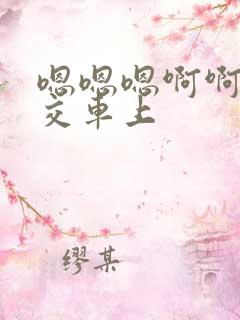 嗯嗯嗯啊啊
交车上
缪某